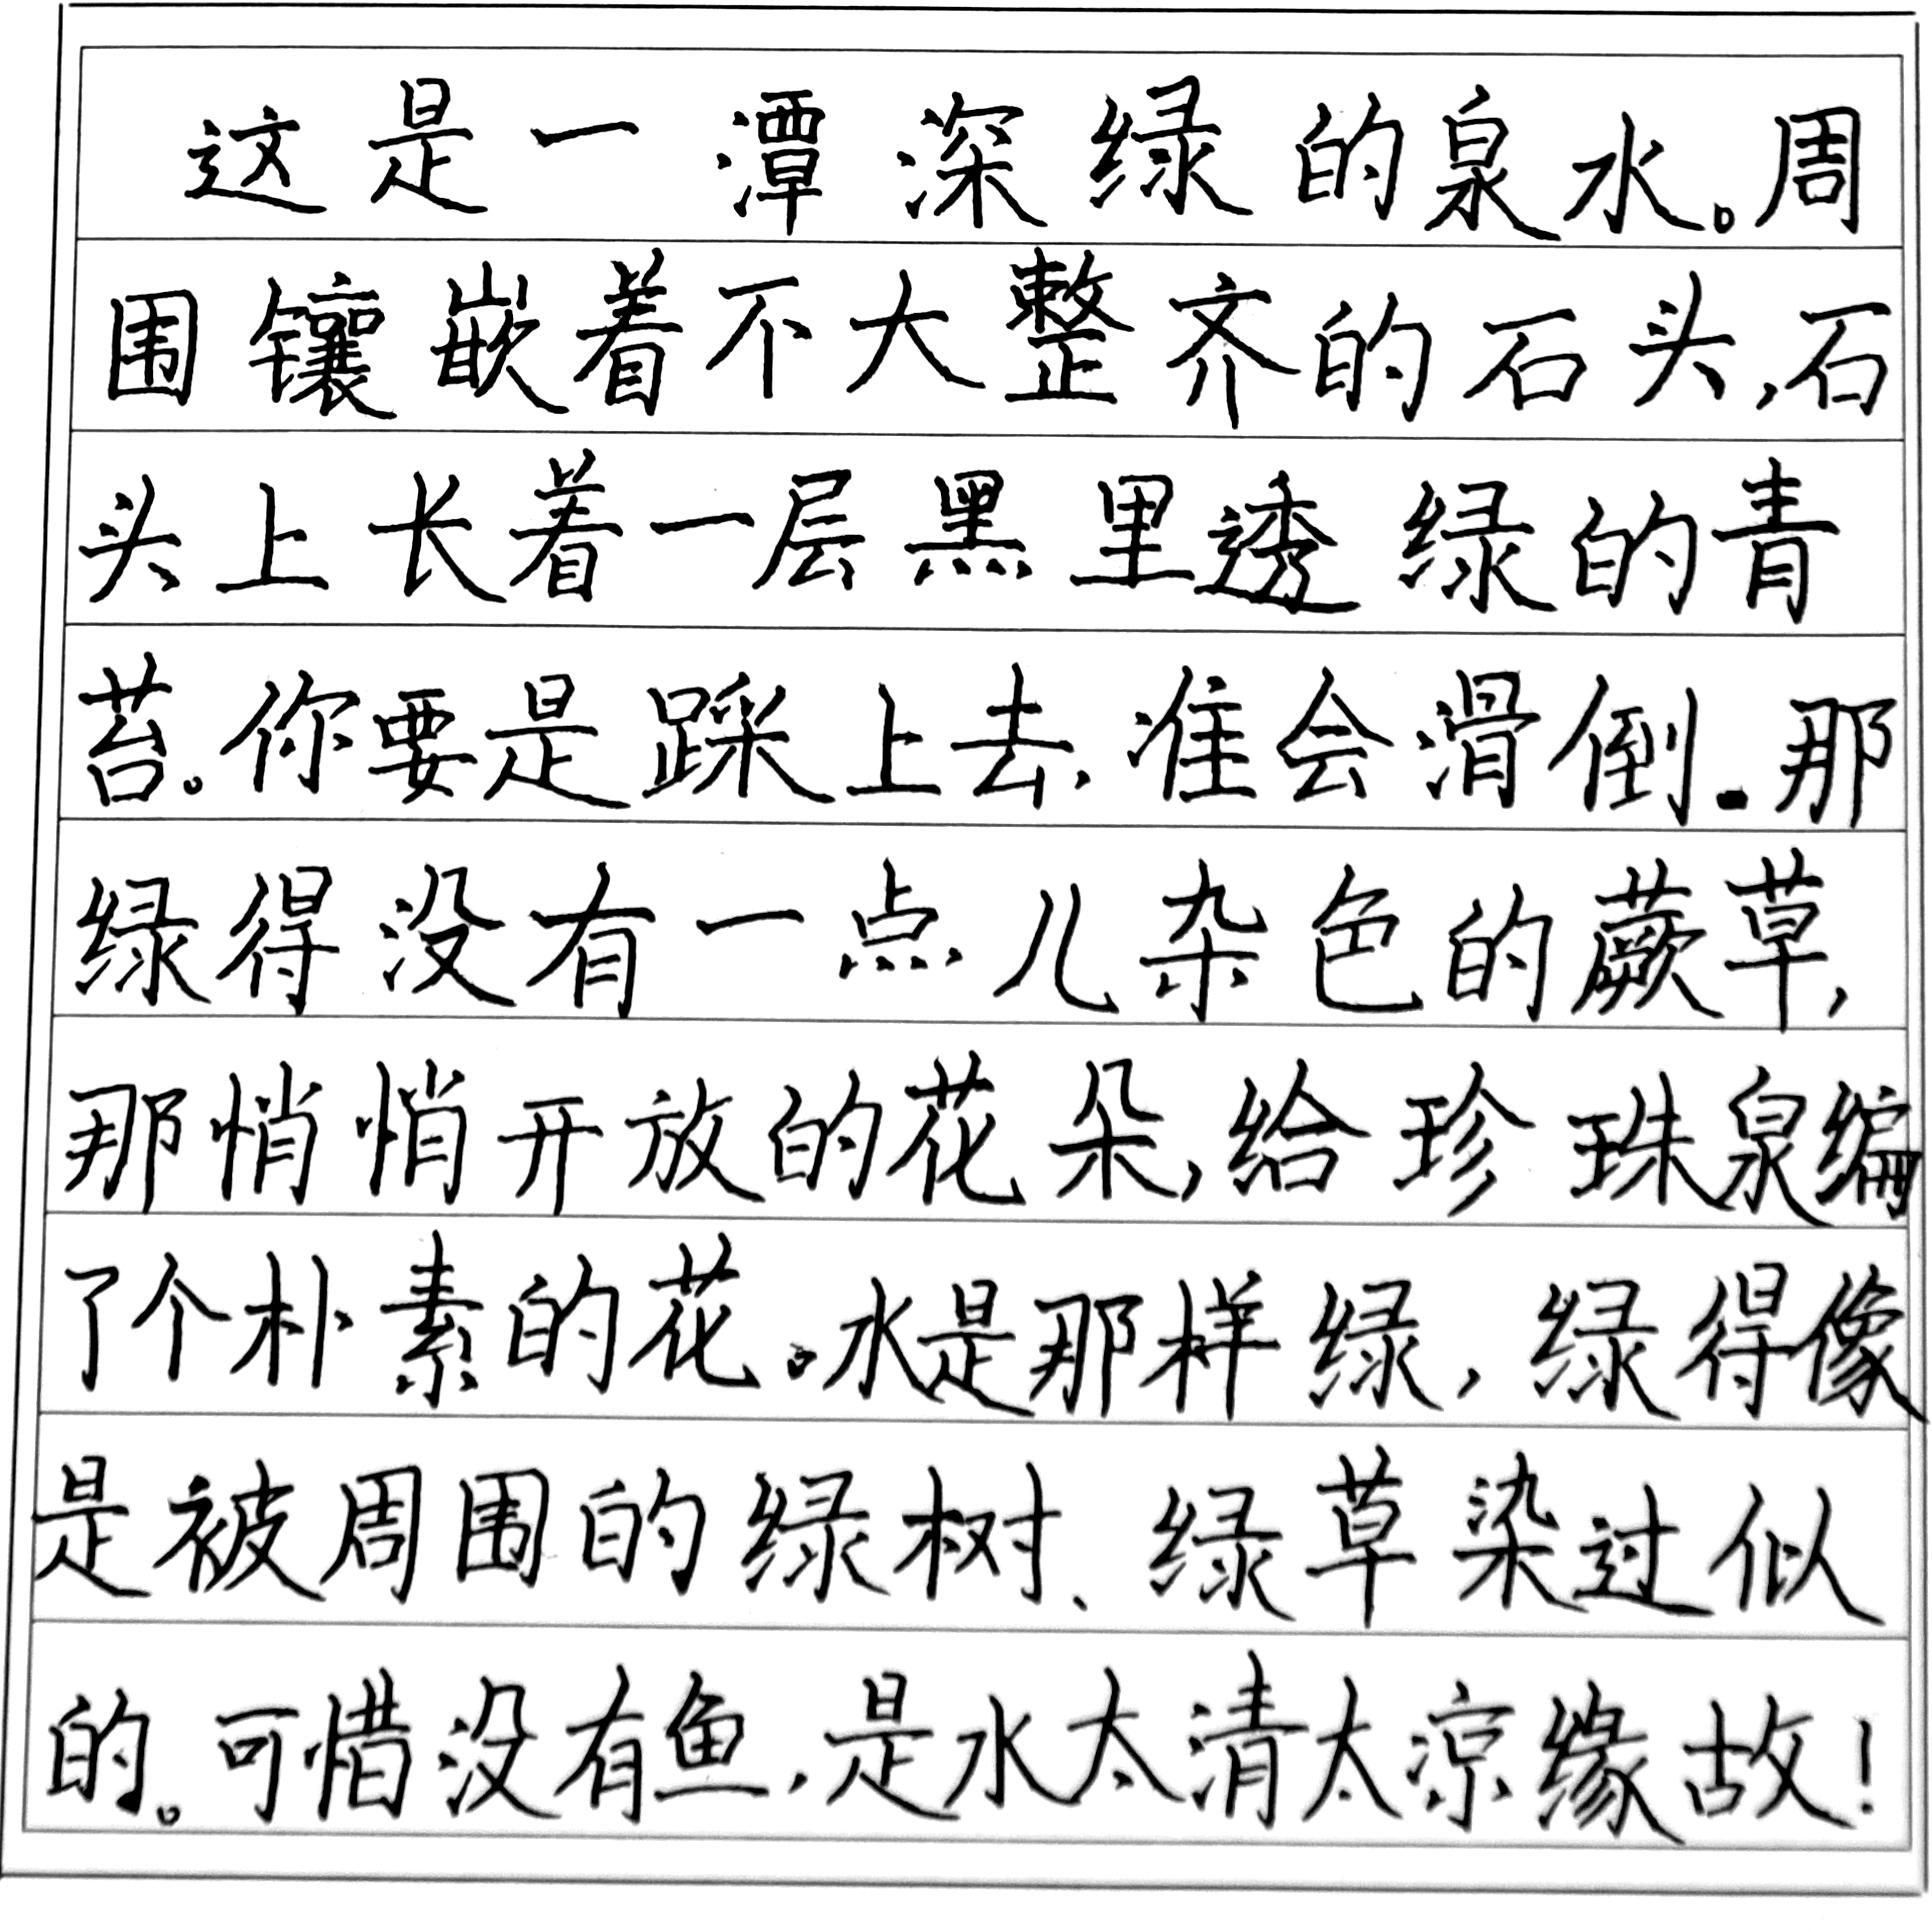 这是一潭深绿的泉水。周
围镶嵌着不大整齐的石头,石
头上长着一层黑里透绿的青
苔。你要是踩上去,准会滑倒。那
绿得没有一点儿杂色的蕨草,
那悄悄开放的花朵,给珍珠泉编
了个朴素的花。水是那样绿,绿得像
是被周围的绿树、绿草染过似
的。可惜没有鱼,是水太清太凉缘故!